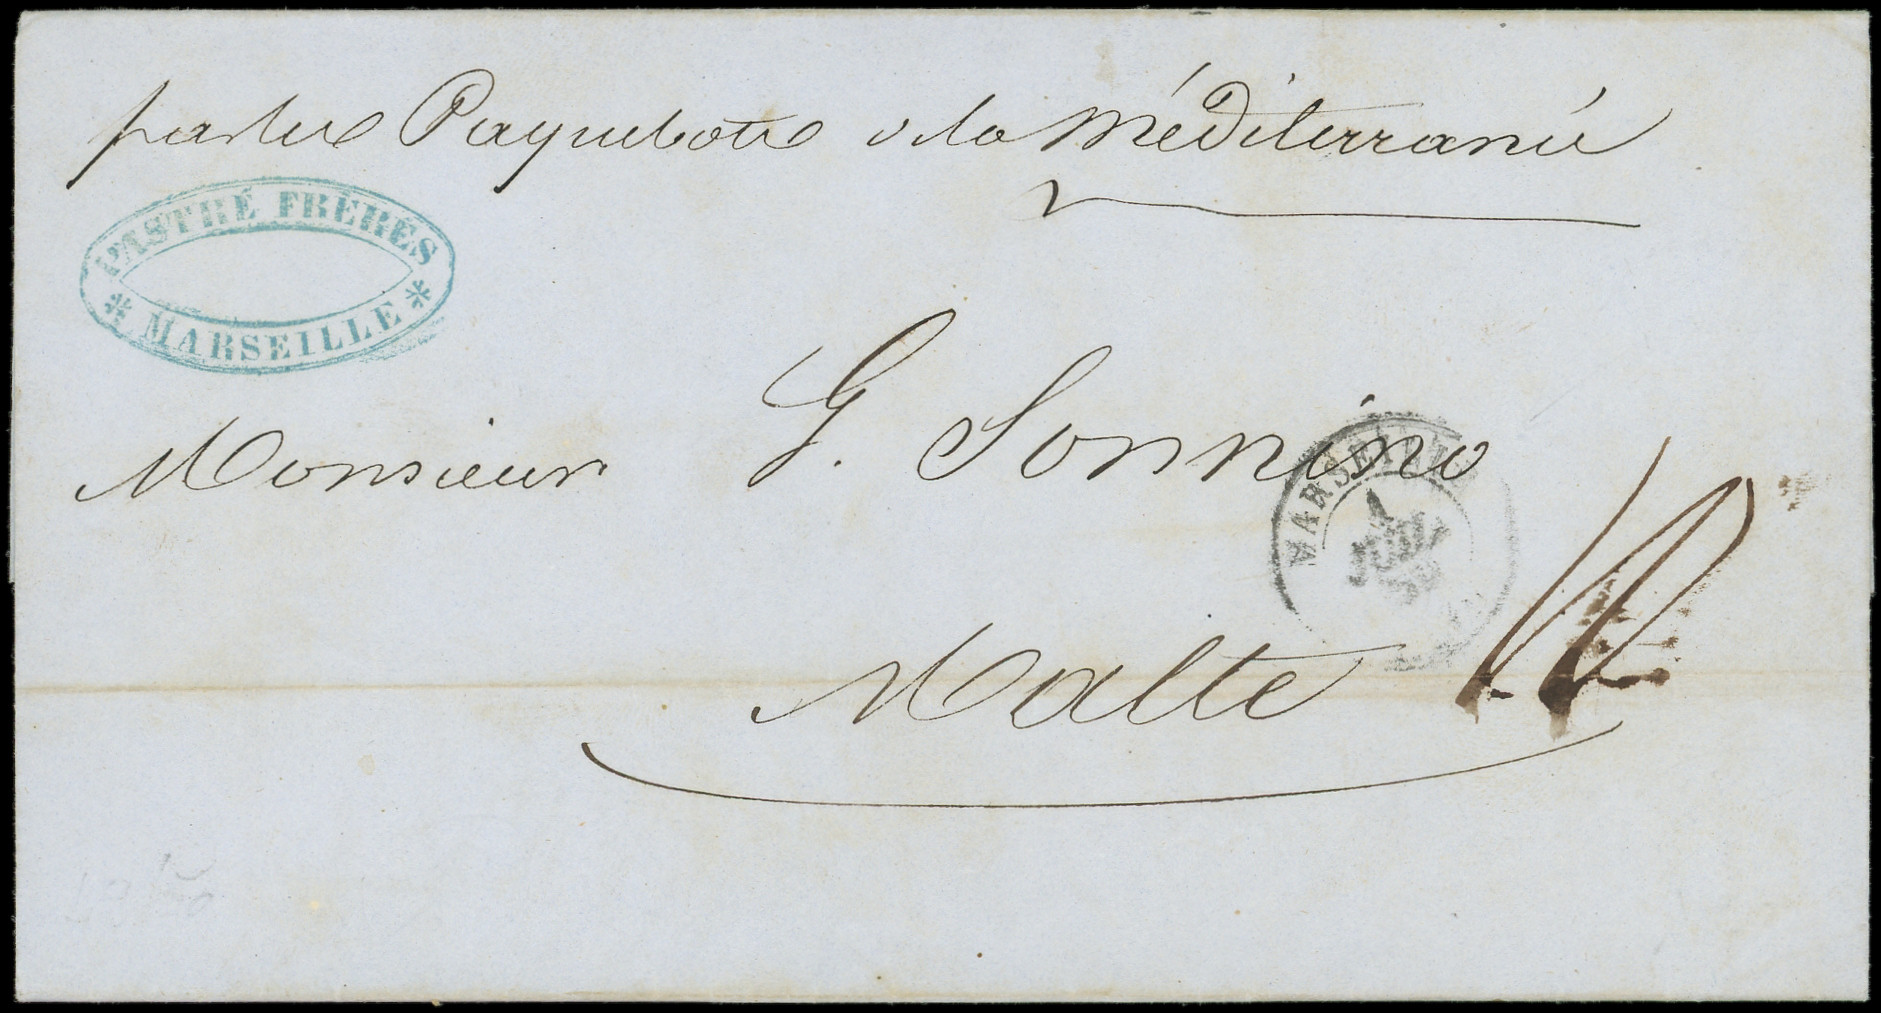 par les Paquebots de la Méditerranée
PASTRÉ FRÈRES
* MARSEILLE *
Monsieur G. Sonnino
MARSEILLE
JUIN
Malte